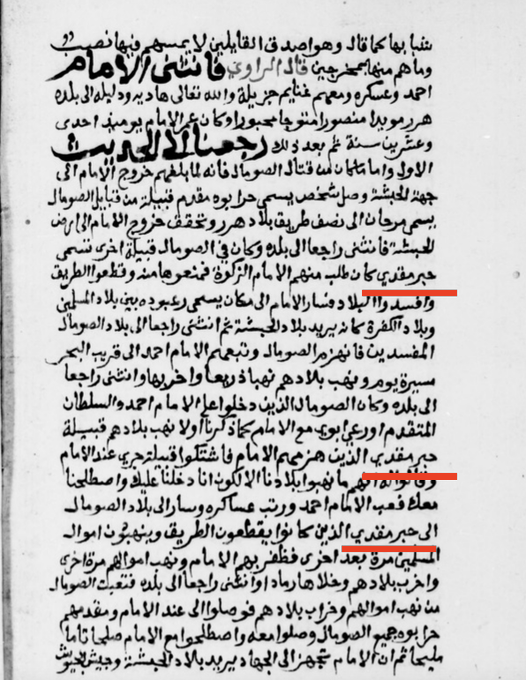 يتقبا بها كما قال وهو اصدق القايلين لا يمسهم فيها نصب
وما هم منها بمخرجين قال الراوي فانثنى الامام
احمد وعسكره ومعهم غنايم جزيلة والله تعالى هاديه ودليله الى بلده
هرر مويدا منصورا متوجا مجبورا وكان عمر الامام يوميذ احدى
وعشرين سنة ثم بعد ذلك رجعنا الى الحديث
الاول واما ما كان من قتال الصومال فانه لما بلغهم خروج الامام الى
جهة الحبشة وصل شخص يسمى حرابوه مقدم قبيلة من قبايل الصومال
يسمى مرحان الى نصف طريق بلاد هرر وتحقق خروج الامام الى ارض
الحبشة فانثنى راجعا الى بلده وكان في الصومال قبيلة اخرى تسمى
حبر مقدي كان طلب منهم الامام الزكوة فمنعوها منه وقطعوا الطريق
وافسدوا البلاد فسار الامام الى مكان يسمى رعبوده بين بلاد المسلمين
وبلاد الكفرة كانه يريد بلاد الحبشة ثم انثنى راجعا الى بلاد الصومال
المفسدين فانهزم الصومال وتبعهم الامام احمد الى قريب البحر
مسيرة يوم ونهب بلادهم نهبا ذريعا واخربها وانثنى راجعا
الى بلده وكان الصومال الذين دخلوا على الامام احمد والسلطان
المتقدم اورعي ابوي مع الامام كما ذكرنا اولا نهب بلادهم قبيلة
حبر مقدي الذين هزمهم الامام فاشتكوا قبيلة حربي عند الامام
وقالوا له انهم ما نهبوا بلادنا الا لكون انا دخلنا عليك واصطلحنا
معك فعب الامام احمد ورتب عساكره وسار الى بلاد الصومال
الى حبر مقدي الذين كانوا يقطعون الطريق وينهبون اموال
المسلمين مرة بعد اخرى فظفر بهم الامام ونهب اموالهم مرة اخرى
واخرب بلادهم وخلاها رمادا وانثنى راجعا الى بلده فتعبت الصومال
من نهب اموالهم وخراب بلادهم فوصلوا الى عند الامام ومقدمهم
حرابوه جميع الصومال وصلوا معه واصطلحوا مع الامام صلحا تاما
مليحا ثم ان الامام تجهز الى الجهاد يريد بلاد الحبشة وجيش بجيوش